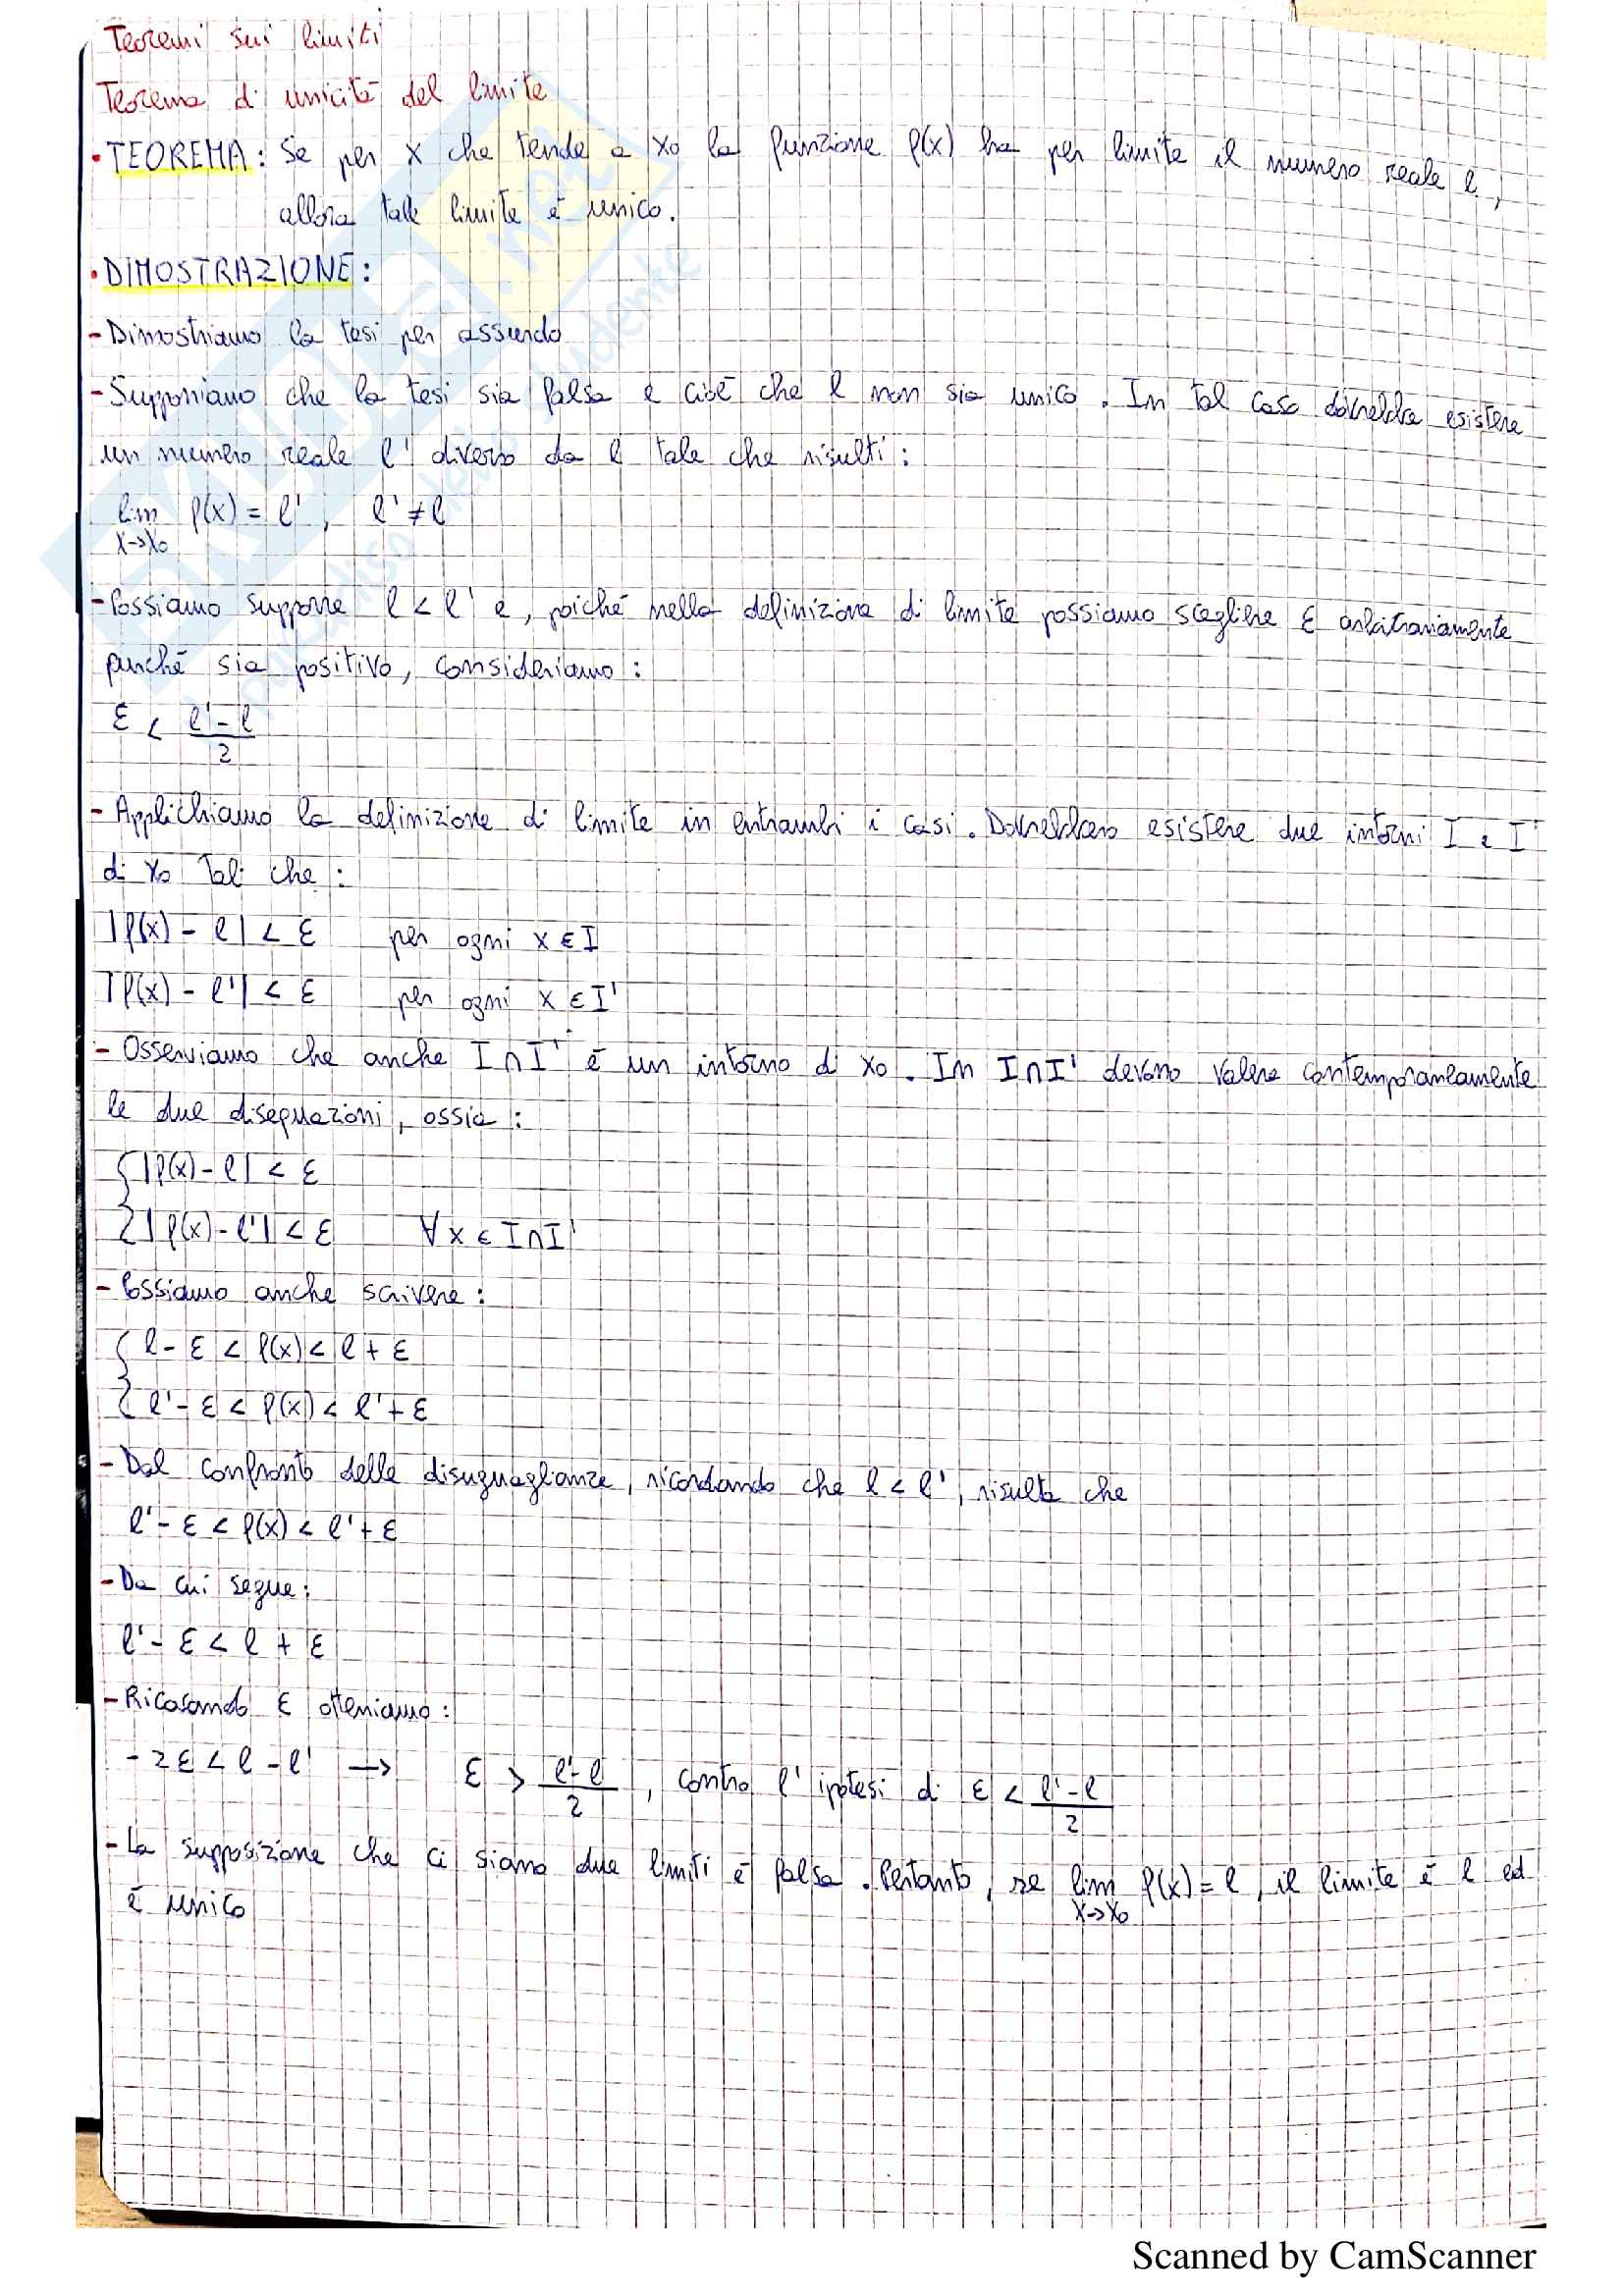 Teoremi sui limiti
Teorema di unicità del limite
• TEOREMA: Se per x che tende a x₀ la funzione f(x) ha per limite il numero reale l,
allora tale limite è unico.
• DIMOSTRAZIONE:
- Dimostriamo la tesi per assurdo
- Supponiamo che la tesi sia falsa e cioè che l non sia unico. In tal caso dovrebbe esistere
un numero reale l' diverso da l tale che risulti:
lim f(x) = l', l' ≠ l
x→x₀
- Possiamo supporre l < l' e, poiché nella definizione di limite possiamo scegliere ε arbitrariamente
purché sia positivo, consideriamo:
ε < l'-l
2
- Applichiamo la definizione di limite in entrambi i casi. Dovrebbero esistere due intorni I e I'
di x₀ tali che:
|f(x) - l| < ε per ogni x ∈ I
|f(x) - l'| < ε per ogni x ∈ I'
- Osserviamo che anche I∩I' è un intorno di x₀. In I∩I' devono valere contemporaneamente
le due disequazioni, ossia:
{ |f(x) - l| < ε
{ |f(x) - l'| < ε ∀x ∈ I∩I'
- Possiamo anche scrivere:
{ l - ε < f(x) < l + ε
{ l' - ε < f(x) < l' + ε
- Dal confronto delle disuguaglianze, ricordando che l < l', risulta che
l' - ε < f(x) < l' + ε
- Da cui segue:
l' - ε < l + ε
- Ricavando ε otteniamo:
-2ε < l - l' → ε > l'-l , contro l'ipotesi di ε < l'-l
2 2
- La supposizione che ci siano due limiti è falsa. Pertanto, se lim f(x) = l, il limite è l ed
x→x₀
è unico
Scanned by CamScanner